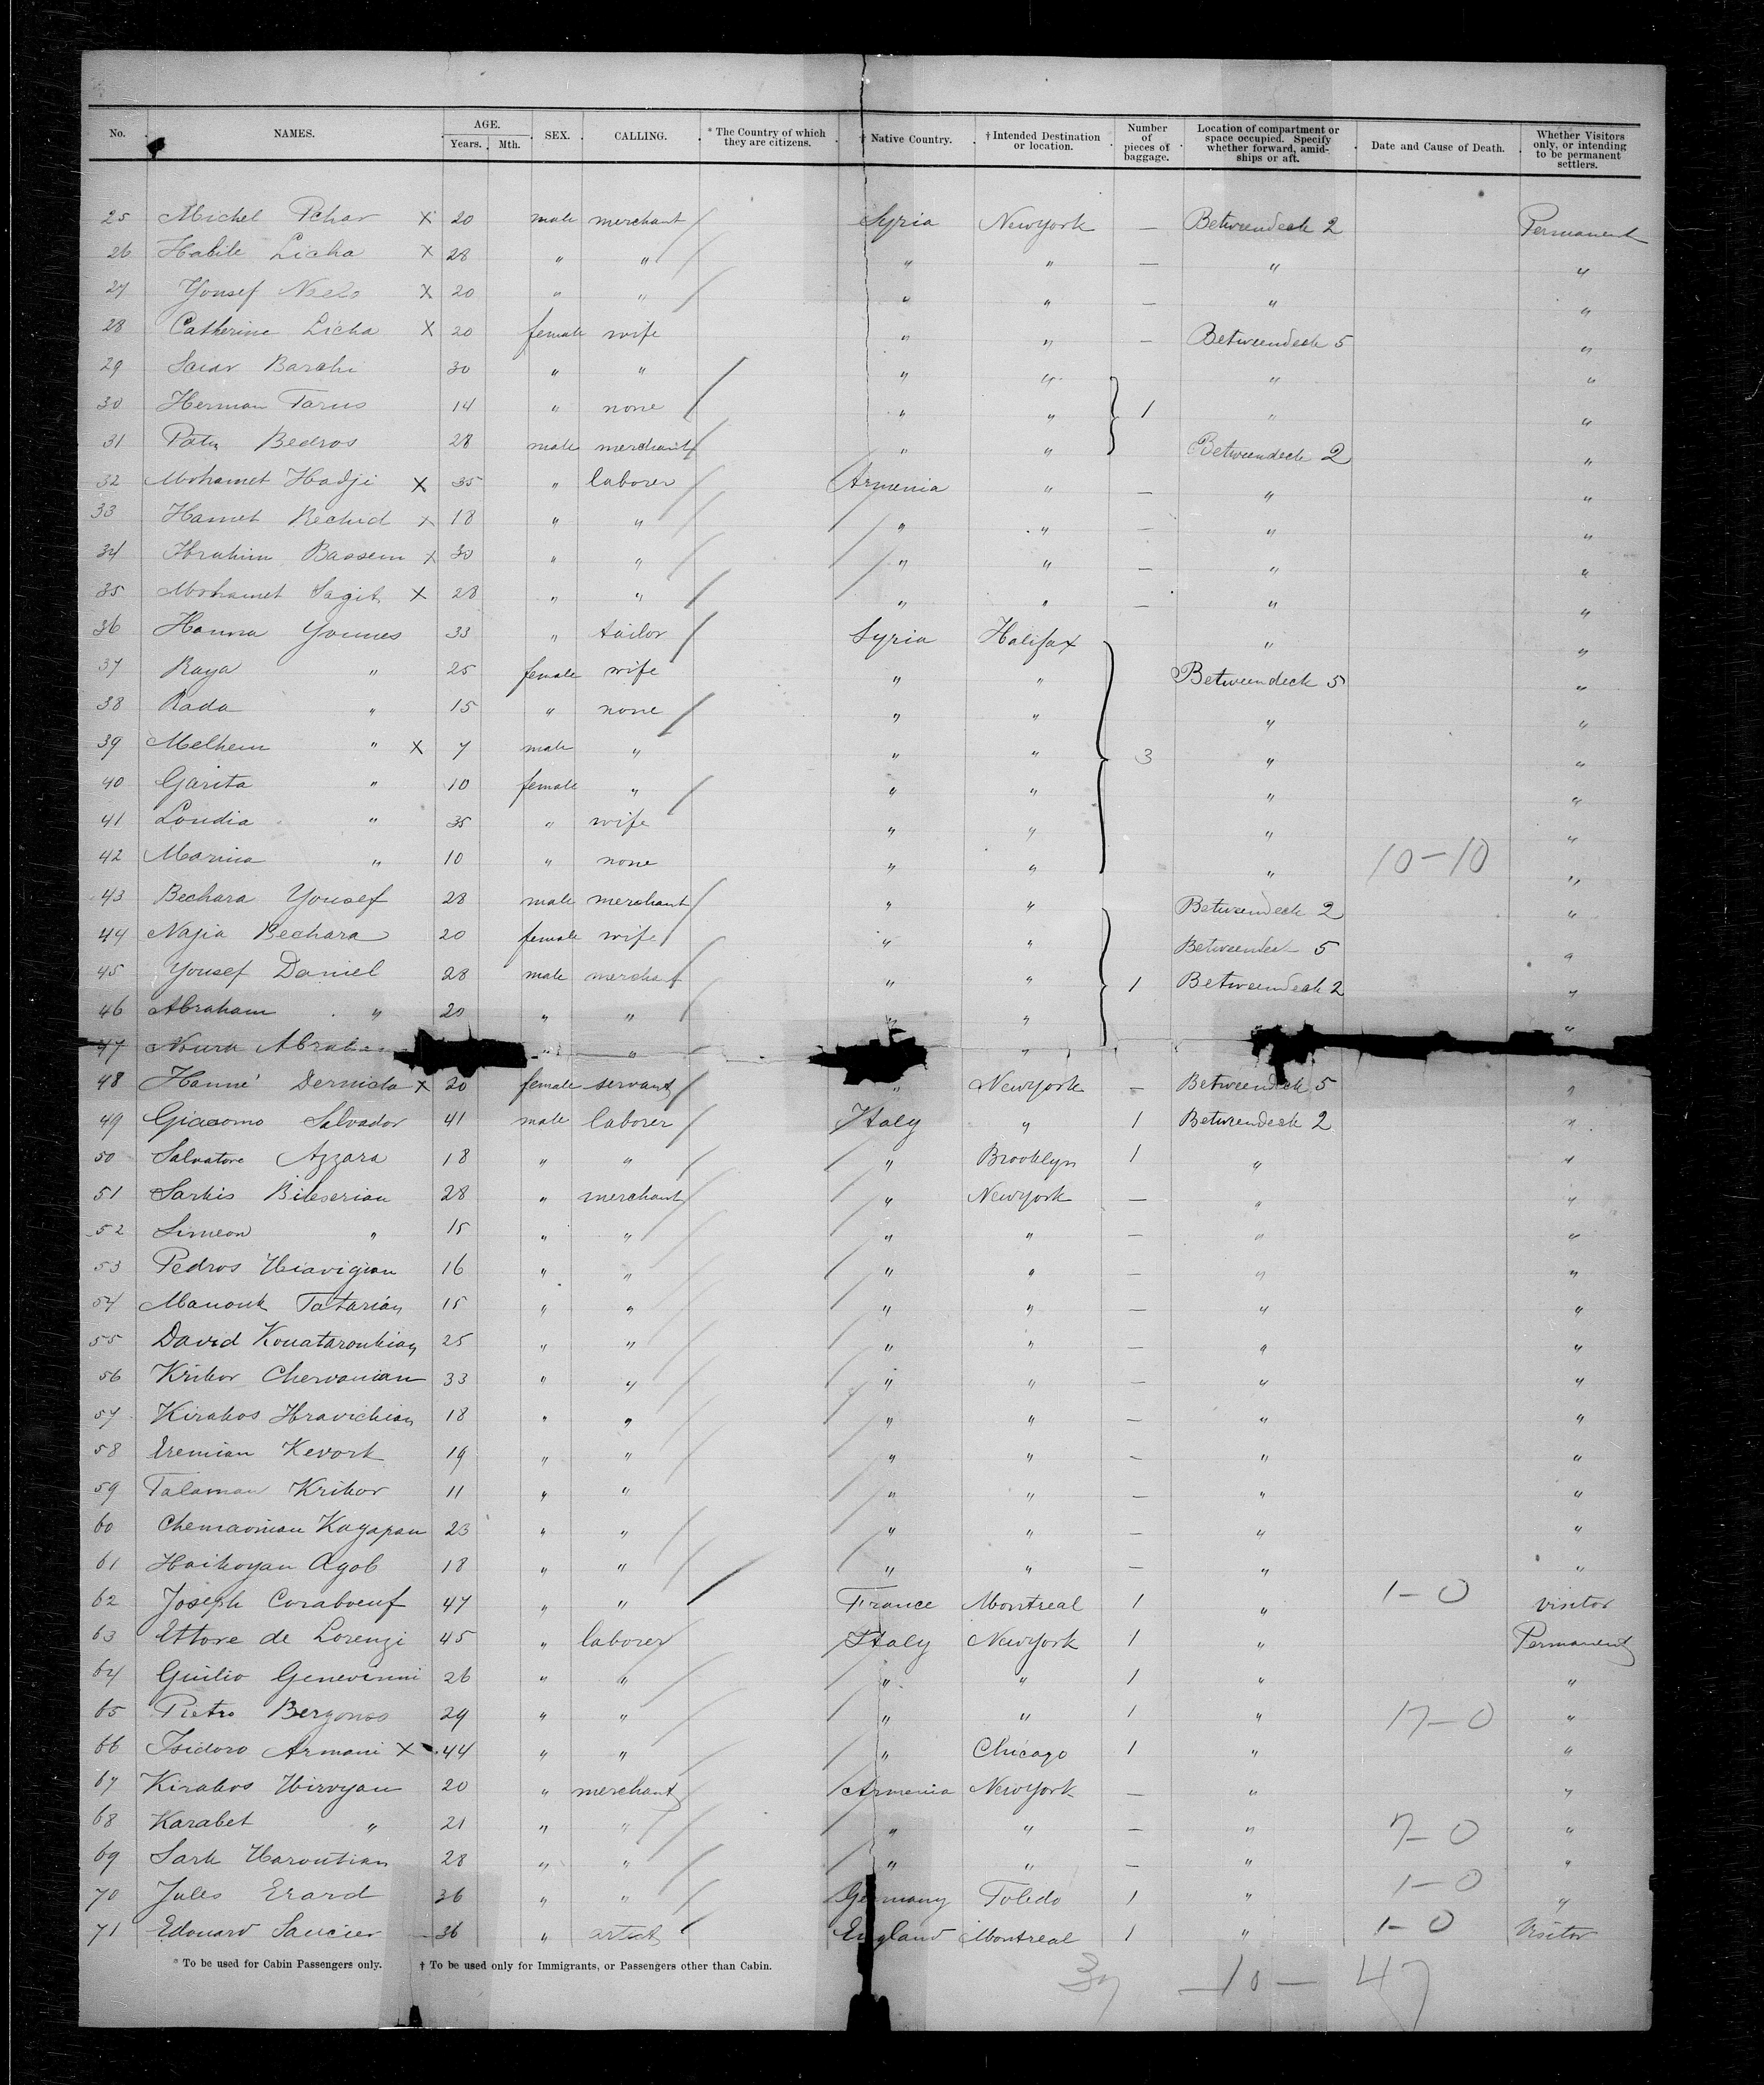 No. NAMES. AGE. Years. Mth. SEX. CALLING. * The Country of which they are citizens. † Native Country. † Intended Destination or location. Number of pieces of baggage. Location of compartment or space occupied. Specify whether forward, amidships or aft. Date and Cause of Death. Whether Visitors only, or intending to be permanent settlers.
25 Michel Pchar X 20 male merchant Syria Newyork — Betweendeck 2 Permanent
26 Habile Licha X 28 " " " " — " "
27 Yousef X 20 " " " " — " "
28 Catherine Licha X 20 female wife " " — Betweendeck 5 "
29 Barchi 30 " " " " " "
30 Herman Tarus 14 " none " " 1 " "
31 Bedros 28 male merchant " " Betweendeck 2 "
32 Mohamet Hadji X 35 " laborer Armenia " — " "
33 Hamet Rechid X 18 " " " " — " "
34 Ibrahim Bassem X 30 " " " " — " "
35 Mohamet Sagit X 28 " " " " — " "
36 Hanna Younes 33 " tailor Syria Halifax " "
37 Raya " 25 female wife " " Betweendeck 5 "
38 Rada " 15 " none " " " "
39 Melhem " X 7 male " " " 3 " "
40 Garita " 10 female " " " " "
41 Loudia " 35 " wife " " " "
42 Marina " 10 " none " " " 10-10 "
43 Bechara Yousef 28 male merchant " " Betweendeck 2 "
44 Najia Bechara 20 female wife " " Betweendeck 5 "
45 Yousef Daniel 28 male merchant " " 1 Betweendeck 2 "
46 Abraham " 20 " " " " "
47 Noura " " "
48 Hanné X 20 female servant " Newyork — Betweendeck 5 "
49 Giacomo Salvador 41 male laborer Italy " 1 Betweendeck 2 "
50 Salvatore Azzara 18 " " " Brooklyn 1 " "
51 Sarkis Bileserian 28 " merchant " Newyork — " "
52 Simeon " 15 " " " " — " "
53 Pedros 16 " " " " — " "
54 Manouk Tatarian 15 " " " " — " "
55 David Kouataroukian 25 " " " " — " "
56 Krikor Chervanian 33 " " " " — " "
57 Kirakos Hravichian 18 " " " " — " "
58 Eremian Kevork 19 " " " " — " "
59 Talaman Krikor 11 " " " " — " "
60 Kagapan 23 " " " " — " "
61 Haikoyan Agob 18 " " " " — " "
62 Joseph Coraboeuf 47 " " France Montreal 1 " 1-0 visitor
63 Ettore de Lorenzi 45 " laborer Italy Newyork 1 " Permanent
64 Guilio Genevinni 26 " " " " 1 " "
65 Pietro 29 " " " " 1 " 17-0 "
66 Isidoro Armani X 44 " " " Chicago 1 " "
67 Kirakos 20 " merchant Armenia Newyork — " "
68 Karabet " 21 " " " " — " 7-0 "
69 Sark Haroutian 28 " " " " — " "
70 Jules Erard 36 " " Germany Toledo 1 " 1-0 "
71 Edouard Saucier 36 " artist England Montreal 1 " 1-0 Visitor
* To be used for Cabin Passengers only. † To be used only for Immigrants, or Passengers other than Cabin.
37 — 10 — 47